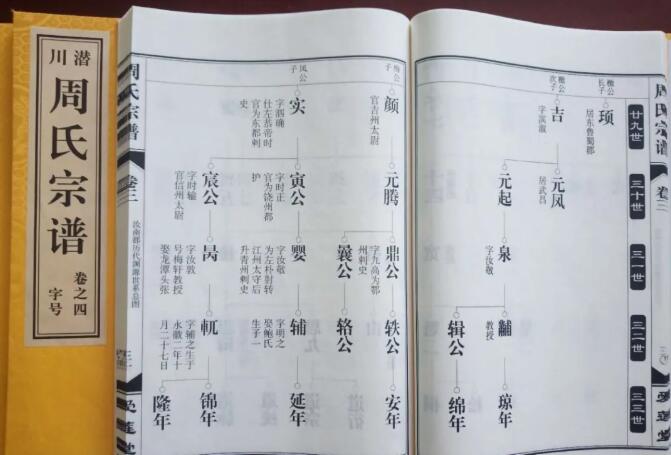 潜川
周氏宗谱
卷之四
字号
周氏宗谱
卷三
廿九世
三十世
三一世
三二世
三三世
檄公长子
顼
居东鲁蜀郡
檄公次子
吉
字滨淑
元凤
居武昌
元起
泉
字汝敬
黼
教授
琼年
辑公
绵年
颜
官吉州太尉
元腾
鼎公
字九高为鄂州刺史
轶公
安年
曩公
辂公
凤公子
实
字泗确
仕左恭帝时
官为东都刺史
寅公
字时正
官为饶州都护
婴
字汝敬
为左朴射转
江州太守后
升青州刺史
辅
字明之
娶鲍氏
生子一
延年
宸公
字时输
官信州太尉
昺
字汝敦
号梅轩教授
娶龙潭头张
軏
字辅之生于
永徽二年十
月二十七日
锦年
隆年
周氏宗谱
卷三
汝南郡历代渊源世系总图
爱莲堂